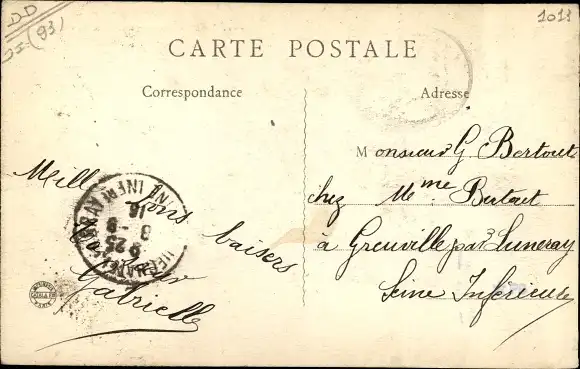 DD
(93)
1013
CARTE POSTALE
Correspondance
Adresse
Mille bons baisers
Gabrielle
Monsieur G. Bertout
chez Mme Bertout
à Greuville par Luneray
Seine Inférieure